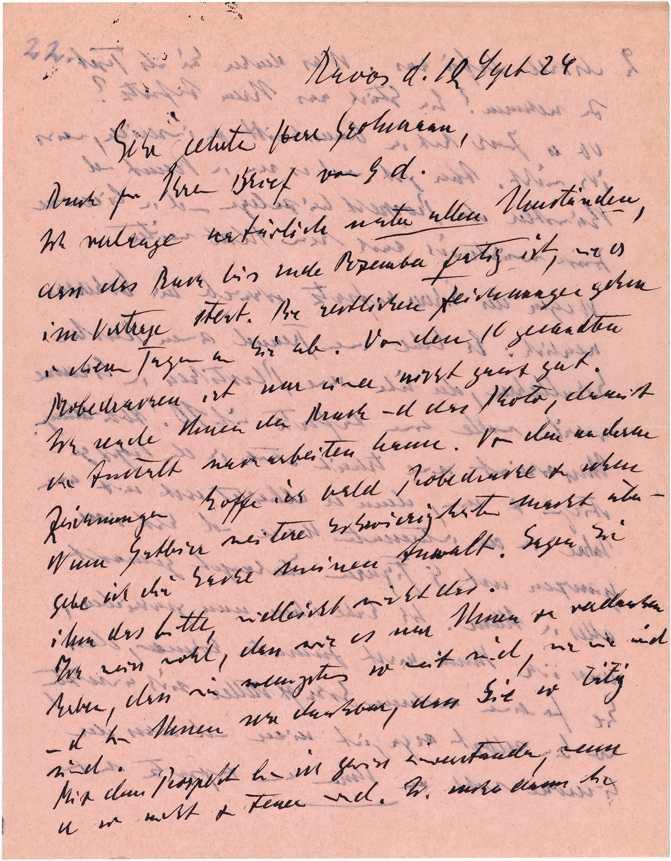 22.
Davos d. 12 Sept 24
Sehr geehrter Herr Grohmann,
Dank für Ihren Brief vom 9 d.
Ich verlange natürlich unter allen Umständen,
dass das Buch bis ende Dezember fertig ist, wie es
im Vertrage steht. Die restlichen Zeichnungen gehen
in diesen Tagen an Sie ab. Von den 10 gesandten
Probedrucken ist nur einer nicht ganz gut.
Ich sende Ihnen den Druck und das Photo, damit
die Anstalt nacharbeiten kann. Von den anderen
Zeichnungen hoffe ich bald Probedrucke zu sehen
Wenn Gutbier weitere Schwierigkeiten macht über-
gebe ich die Sache meinem Anwalt. Sagen Sie
ihm das bitte, vielleicht nützt das.
Ich weiss wohl, dass wir es nur Ihnen zu verdanken
haben, dass wir wenigstens so weit sind, wie wir sind
und bin Ihnen sehr dankbar, dass Sie so tätig
sind.
Mit dem Prospekt bin ich gerne einverstanden, wenn
er so nicht zu teuer wird. Ich